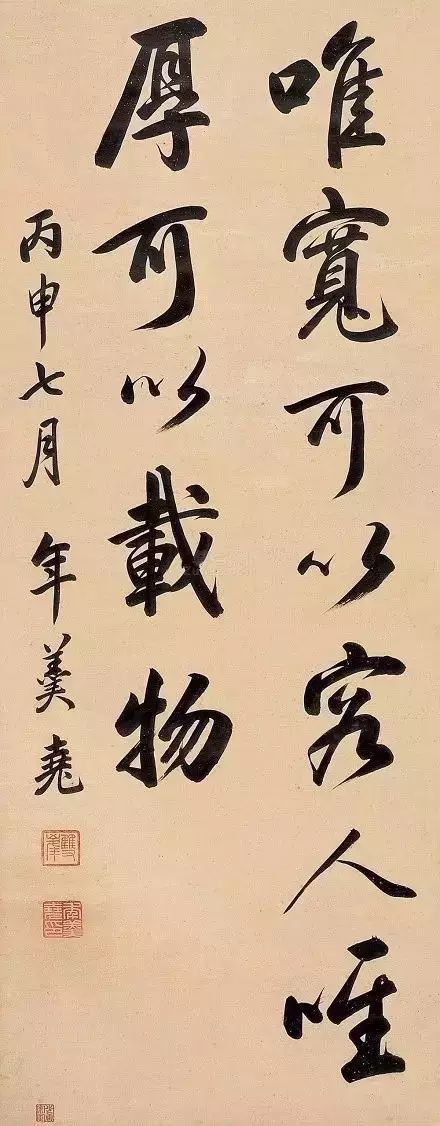 唯寬可以容人唯
厚可以載物
丙申七月 年羹堯